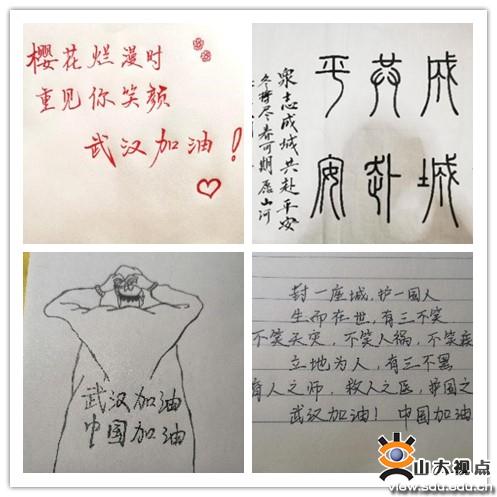 樱花烂漫时
重见你笑颜
武汉加油！
成城
共赴
平安
众志成城共赴平安
冬将尽春可期愿山河
武汉加油
中国加油
封一座城,护一国人
生而在世,有三不笑
不笑天灾,不笑人祸,不笑疾
立地为人,有三不黑
育人之师,救人之医,护国之
武汉加油! 中国加油
山大视点
view.sdu.edu.cn